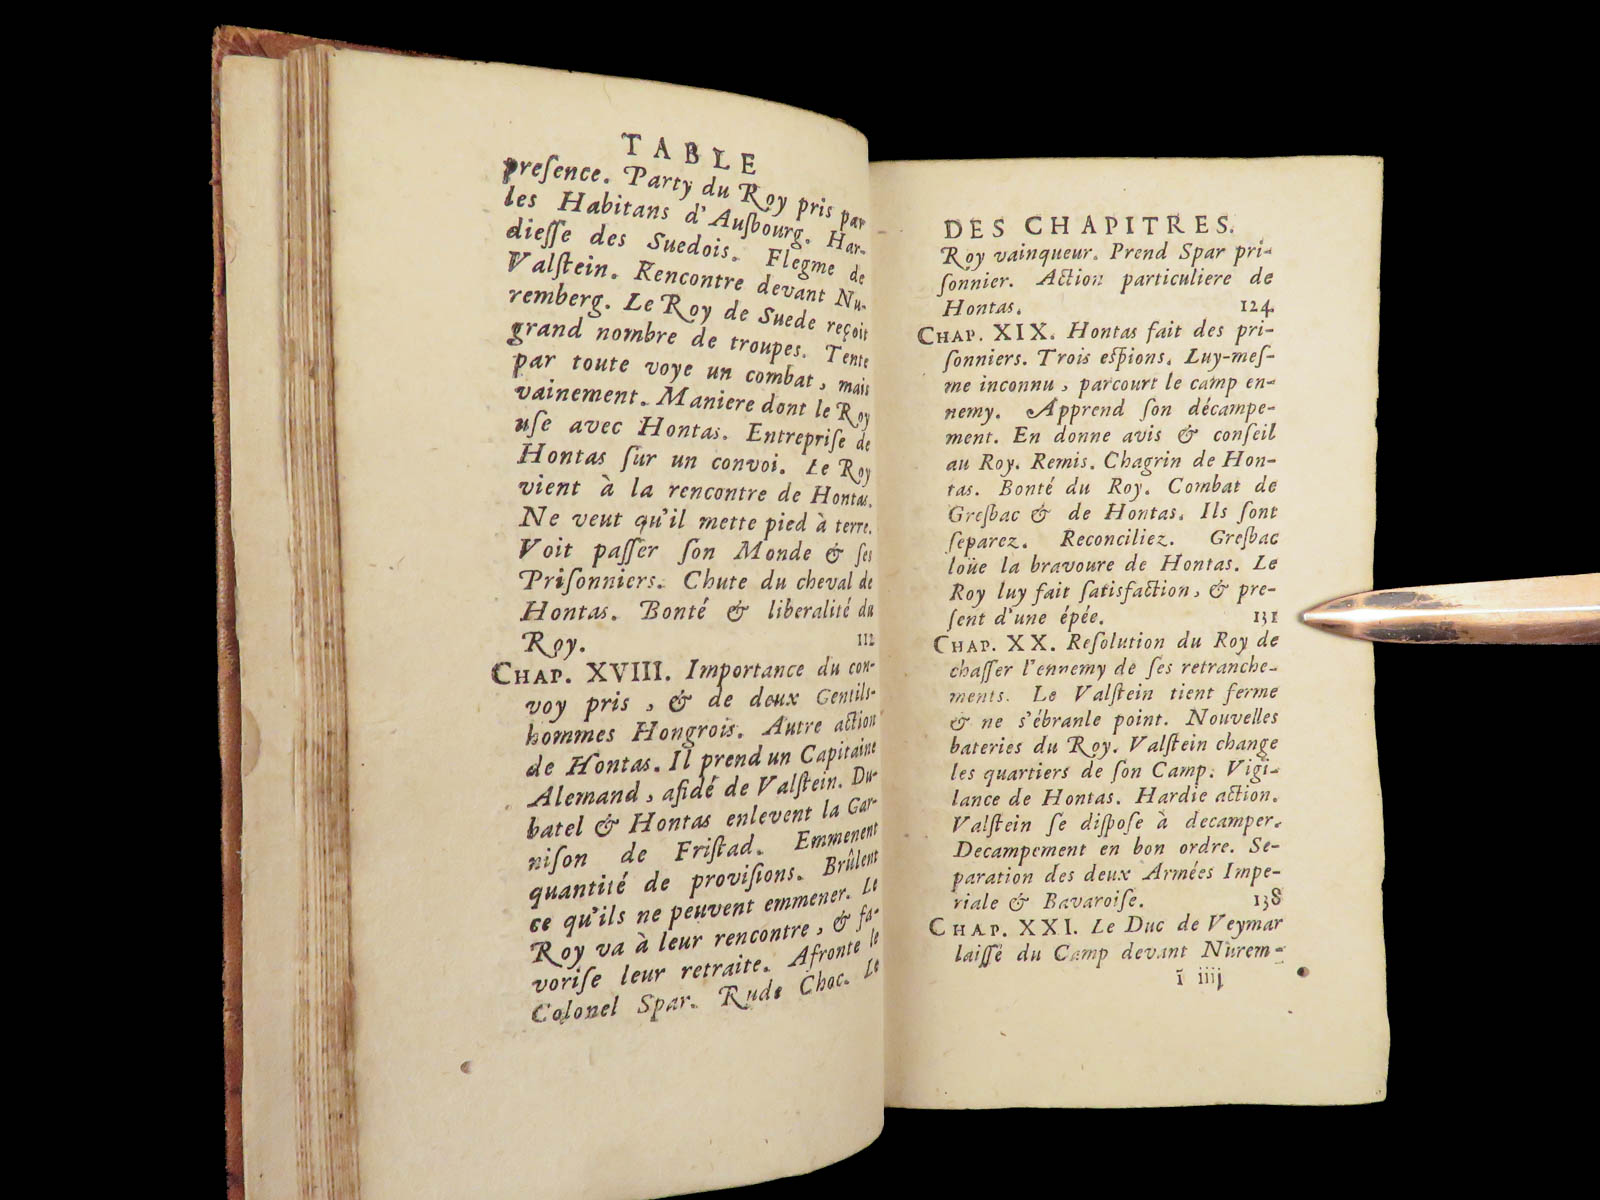 TABLE
preſence. Party du Roy pris par
les Habitans d'Auſbourg. Har-
dieſſe des Suedois. Flegme de
Valſtein. Rencontre devant Nu-
remberg. Le Roy de Suede reçoit
grand nombre de troupes. Tente
par toute voye un combat, mais
vainement. Maniere dont le Roy
uſe avec Hontas. Entrepriſe de
Hontas ſur un convoi. Le Roy
vient à la rencontre de Hontas.
Ne veut qu'il mette pied à terre.
Voit paſſer ſon Monde & ſes
Priſonniers. Chute du cheval de
Hontas. Bonté & liberalité du
Roy. 112
CHAP. XVIII. Importance du con-
voy pris, & de deux Gentils-
hommes Hongrois. Autre action
de Hontas. Il prend un Capitaine
Alemand, afidé de Valſtein. Du-
batel & Hontas enlevent la Gar-
niſon de Friſtad. Emmenent
quantité de proviſions. Brûlent
ce qu'ils ne peuvent emmener. Le
Roy va à leur rencontre, & fa-
voriſe leur retraite. Afronte le
Colonel Spar. Rude Choc. Le
DES CHAPITRES.
Roy vainqueur. Prend Spar pri-
ſonnier. Action particuliere de
Hontas. 124
CHAP. XIX. Hontas fait des pri-
ſonniers. Trois eſpions. Luy-meſ-
me inconnu, parcourt le camp en-
nemy. Apprend ſon décampe-
ment. En donne avis & conſeil
au Roy. Remis. Chagrin de Hon-
tas. Bonté du Roy. Combat de
Greſbac & de Hontas. Ils ſont
ſeparez. Reconciliez. Greſbac
loüe la bravoure de Hontas. Le
Roy luy fait ſatisfaction, & pre-
ſent d'une épée. 131
CHAP. XX. Reſolution du Roy de
chaſſer l'ennemy de ſes retranche-
ments. Le Valſtein tient ferme
& ne s'ébranle point. Nouvelles
bateries du Roy. Valſtein change
les quartiers de ſon Camp. Vigi-
lance de Hontas. Hardie action.
Valſtein ſe diſpoſe à decamper.
Decampement en bon ordre. Se-
paration des deux Armées Impe-
riale & Bavaroiſe. 138
CHAP. XXI. Le Duc de Veymar
laiſſé du Camp devant Nurem-
ī iiij